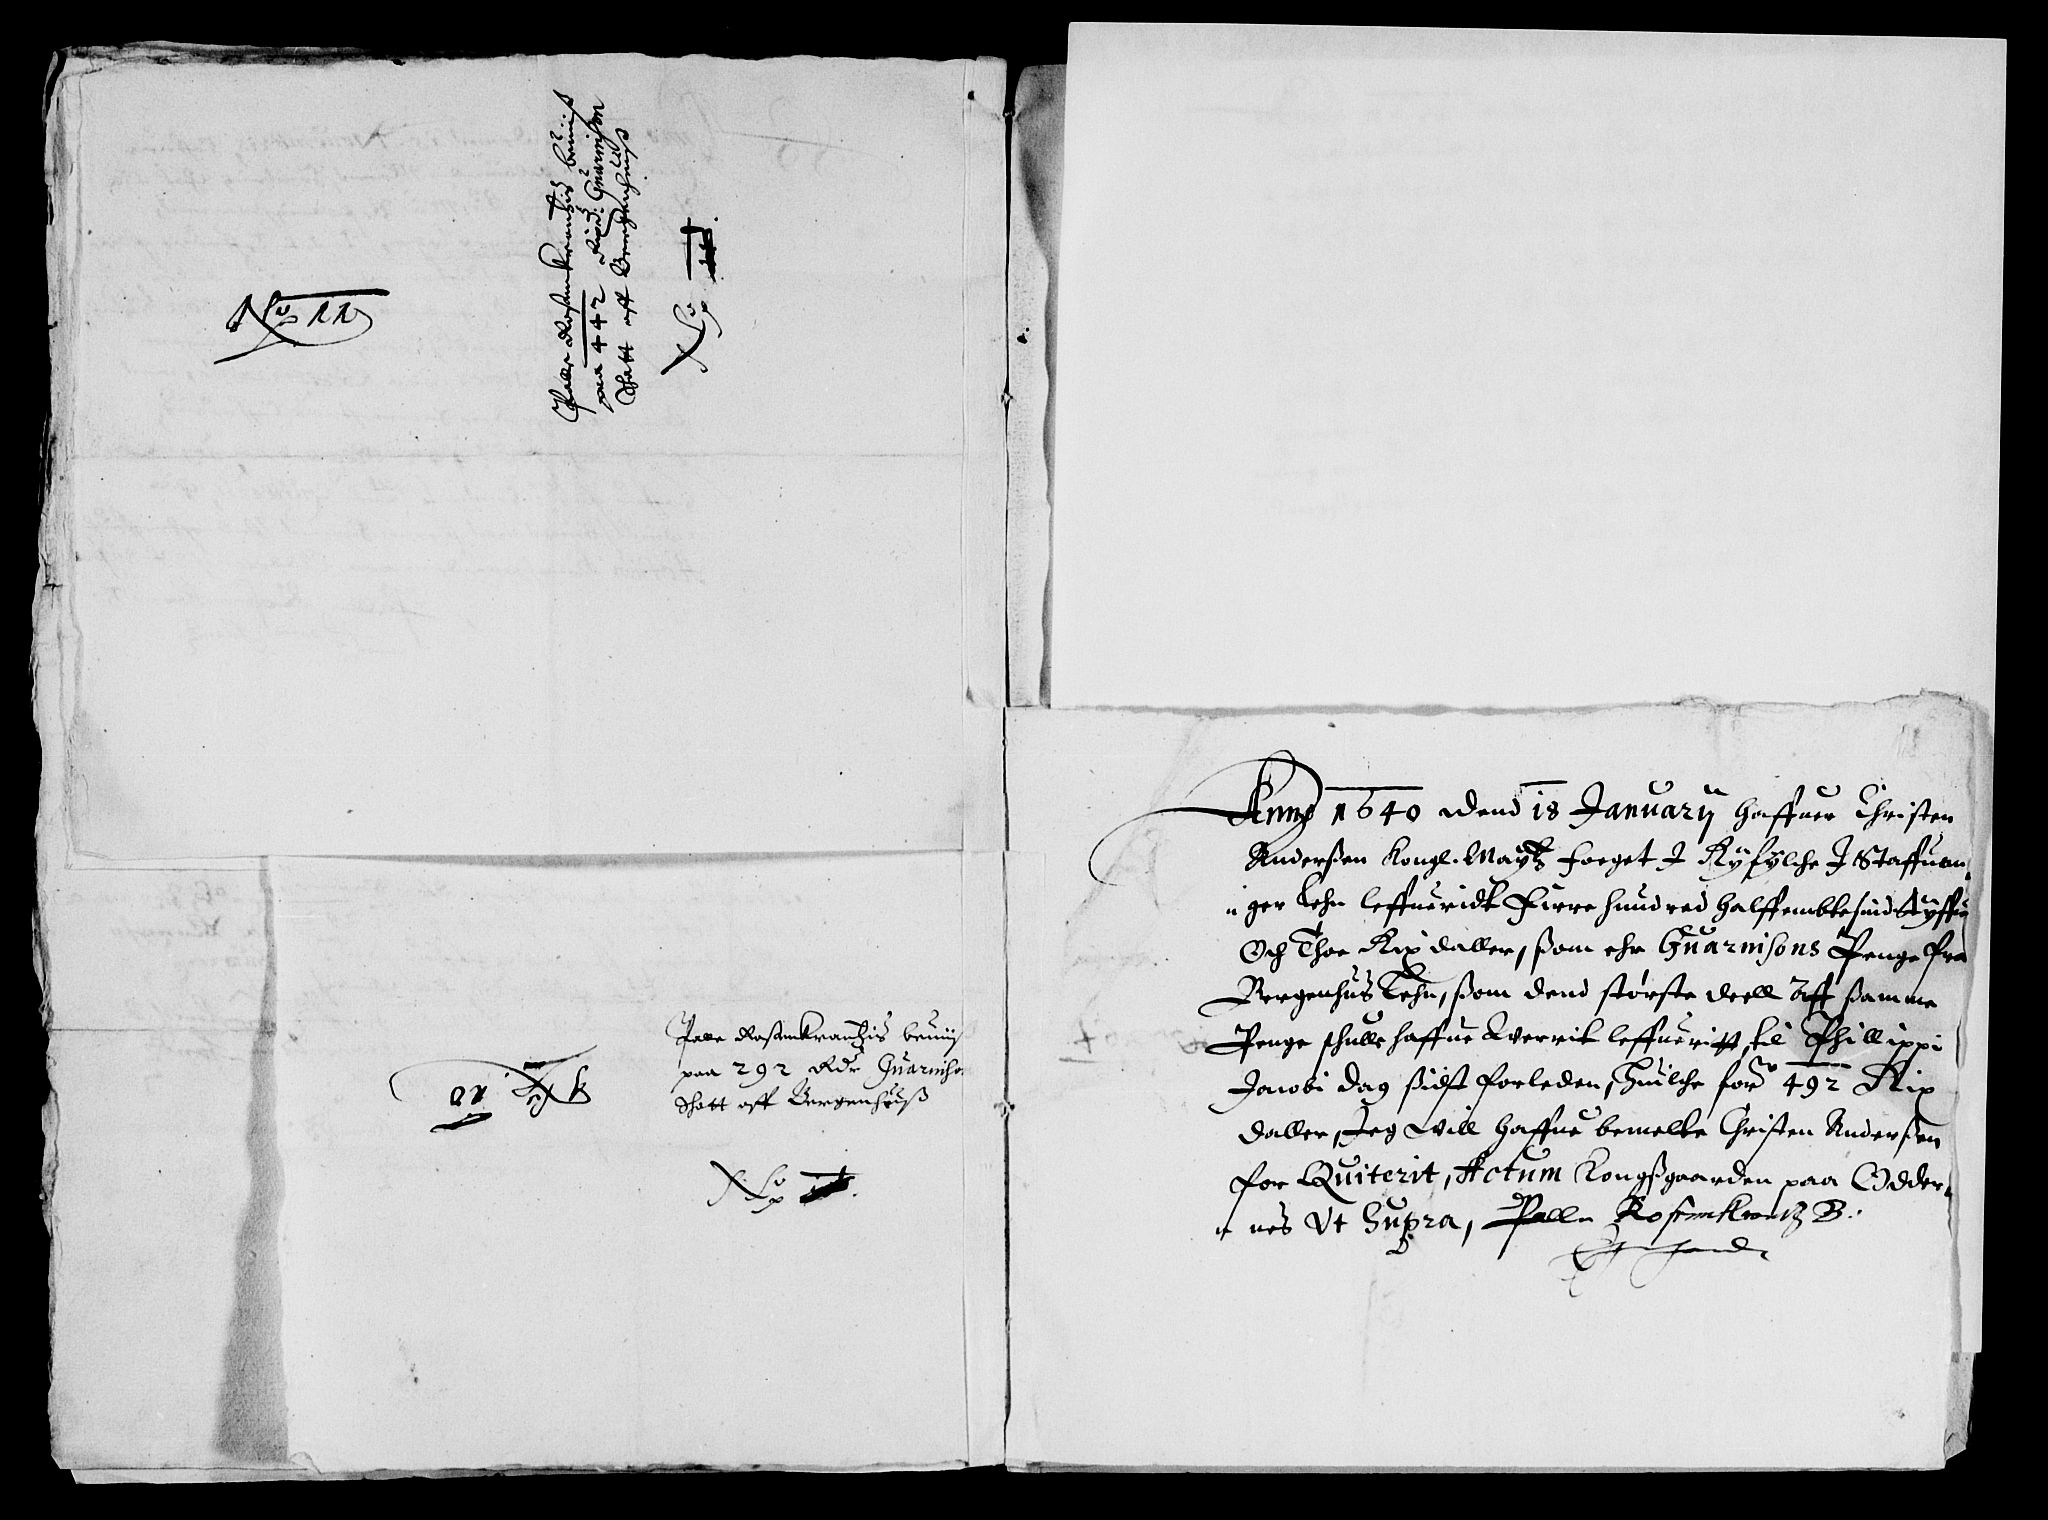 No 11
Palle Rosenkrantzis beuiiß
paa 442 Rixd: Guarnison
Schatt aff Bergenhuuß
No
Palle Rosenkrantzis beuiiß
paa 292 Rdr Guarniso
Schatt aff Bergenhuuß
No
Anno 1640 dend 18 Januarij haffuer Christen
Anderßen Kongl. Maytz foeget J Ryfylche J Staffuan¬
ger Lehn leffueridt Firre hundred halffembtesinds tyffue
Och Thoe Rix daller, ßom ehr Guarnisons Penge fra
Bergenhus Lehn, ßom dend største deell aff ßamme
Penge schulle haffue werrit leffueritt til Phillippi
Jacobi dag ßidst forleden, Huilche for 492 Rix
daller, Jeg will haffue bemelte Christen Anderßen
for Quiterit, Actum Kongßgaarden paa Odder¬
nes Vt Supra, Palle Rosenkrantz